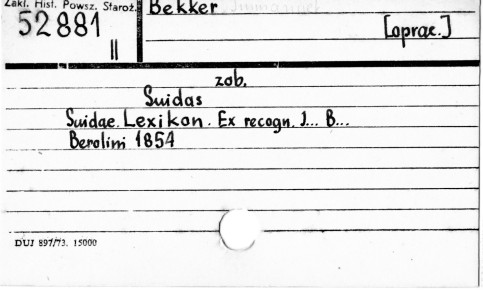 Zakł. Hist. Powsz. Staroż.
52881
II
Bekker
[oprac.]
zob.
Suidas
Suidae. Lexikon. Ex recogn. I... B...
Berolini 1854
DUJ 897/73. 15000